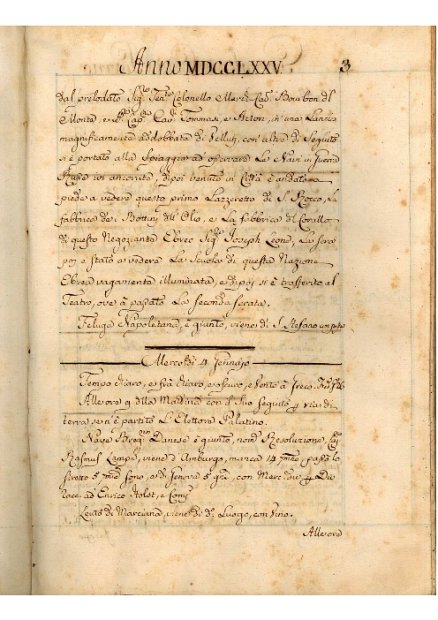 Anno MDCCLXXV. 3
dal prelodato Sig.r Ten.te Colonello March. Cav. Bourbon del
Monte, e Sig.ri Cap.ni Cav. Tommasi, e Acton, in una Lancia
magnificamente addobbata di Velluti, con altra di Seguito
si è portato alla Spiaggia ad osservare le Navi in
Russe ivi ancorate, di poi venuto in Città è andato a
piede a vedere questo primo Lazzeretto di S. Rocco, la
fabbrica de Bottini dell' Olio, e La fabbrica del Corallo
di questo Negoziante Ebreo Sig.r Joseph Leone, La sera
poi è stato a vedere La Scuola di questa Nazione
Ebrea vagamente illuminata, e di poi si è trasferito al
Teatro, ove à passato La seconda serata.
Feluga Napoletana, è giunto, viene di S. Stefano
Mercoldì 4 Jennajo
Tempo chiaro, e fra chiaro, e oscuro, e Vento a Greco
Alle ore 9 della Mattina con il Suo seguito p via di
terra se n'è partito L'Elettore Palatino.
Nave Danese è giunto, nom.ª Resoluzione, Cap.
Rasmus Lampe, viene d'Amburgo, manca 14, passò lo
Stretto sono, e di Genova 5 g.ni, con Merc. p
ad Enrico Holst, e Comp.
Leuto di Marciana, viene di d.º Luogo, con Vino.
Alle ore